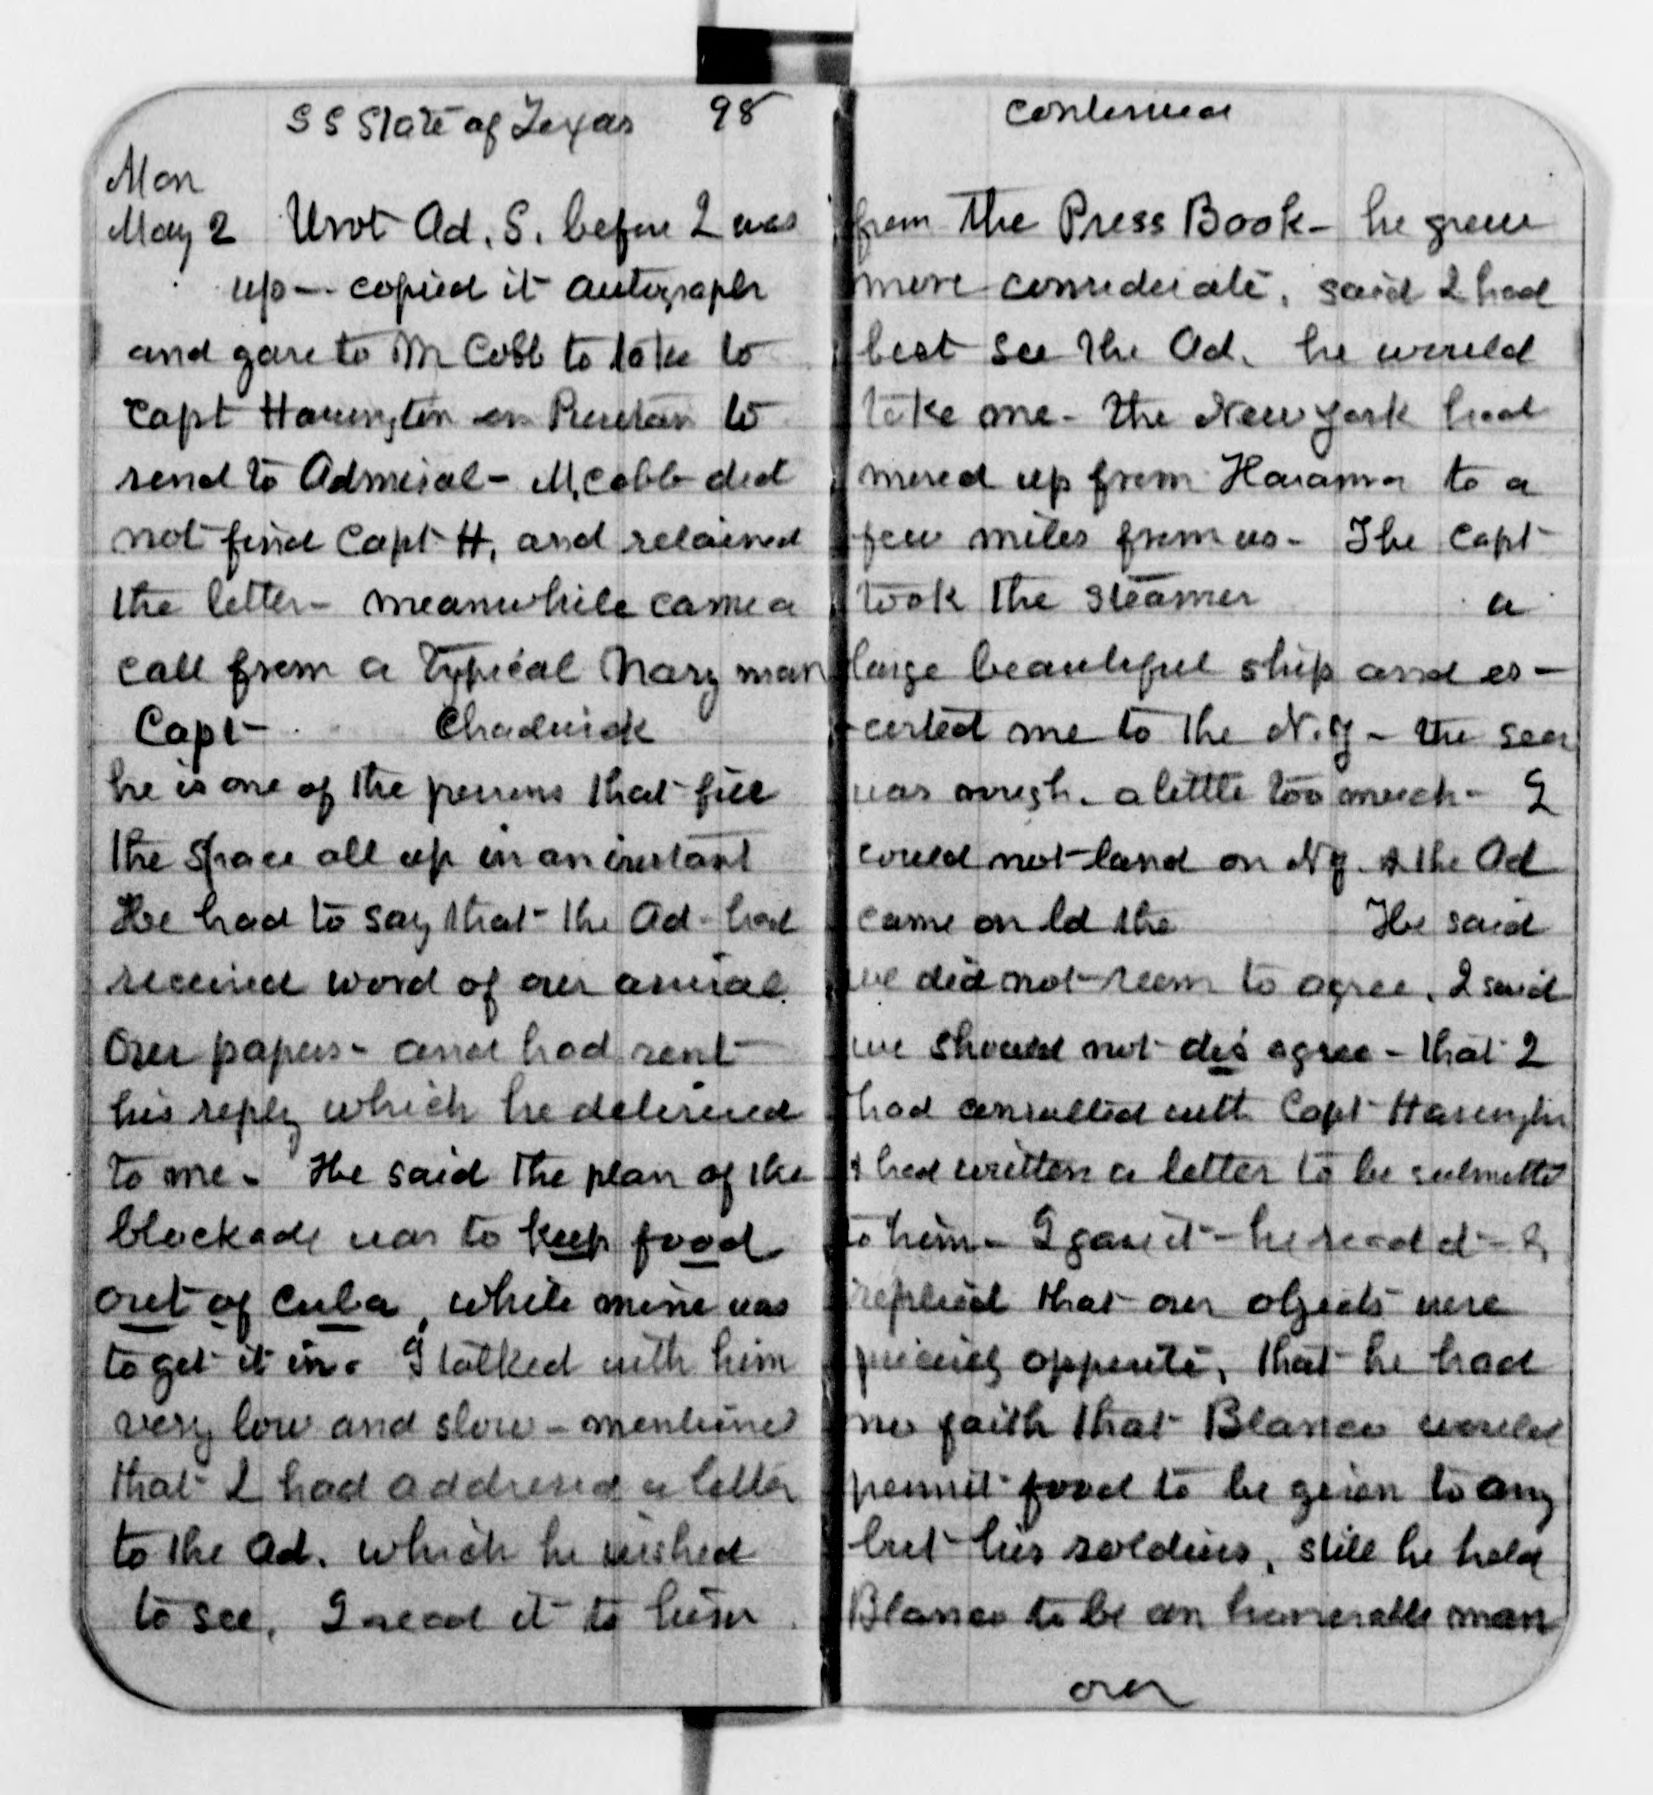 S S State of Texas 98
Mon
May 2 Wrot Ad. S. before I was
up - copied it autograph
and gave to Mr Cobb to take to
Capt Harrington on Puritan to
send to Admiral - Mr Cobb did
not find Capt H. and retained
the letter - meanwhile came a
call from a typical Navy man
Capt Chadwick
he is one of the persons that fill
the space all up in an instant
He had to say that the Ad - had
received word of our arrival
Our papers - and had sent
his reply which he delivered
to me - He said the plan of the
blockade was to keep food
out of Cuba, while mine was
to get it in. I talked with him
very low and slow - mentioned
that I had addressed a letter
to the Ad. which he wished
to see. I read it to him
Continued
from the Press Book - he grew
more considerate, said I had
best see the Ad. he would
take me - the New York had
moved up from Havana to a
few miles from us - The Capt
took the steamer a
large beautiful ship and es-
-corted me to the N.Y - the sea
was rough. a little too much - I
could not land on NY. & the Ad
came on bd the He said
we did not seem to agree, I said
we should not dis agree - that I
had consulted with Capt Harrington
& had written a letter to be submitted
to him - I gave it - he read it - &
replied that our objects were
precisely opposite, that he had
no faith that Blanco would
permit food to be given to any
but his soldiers, still he held
Blanco to be an honerable man
over